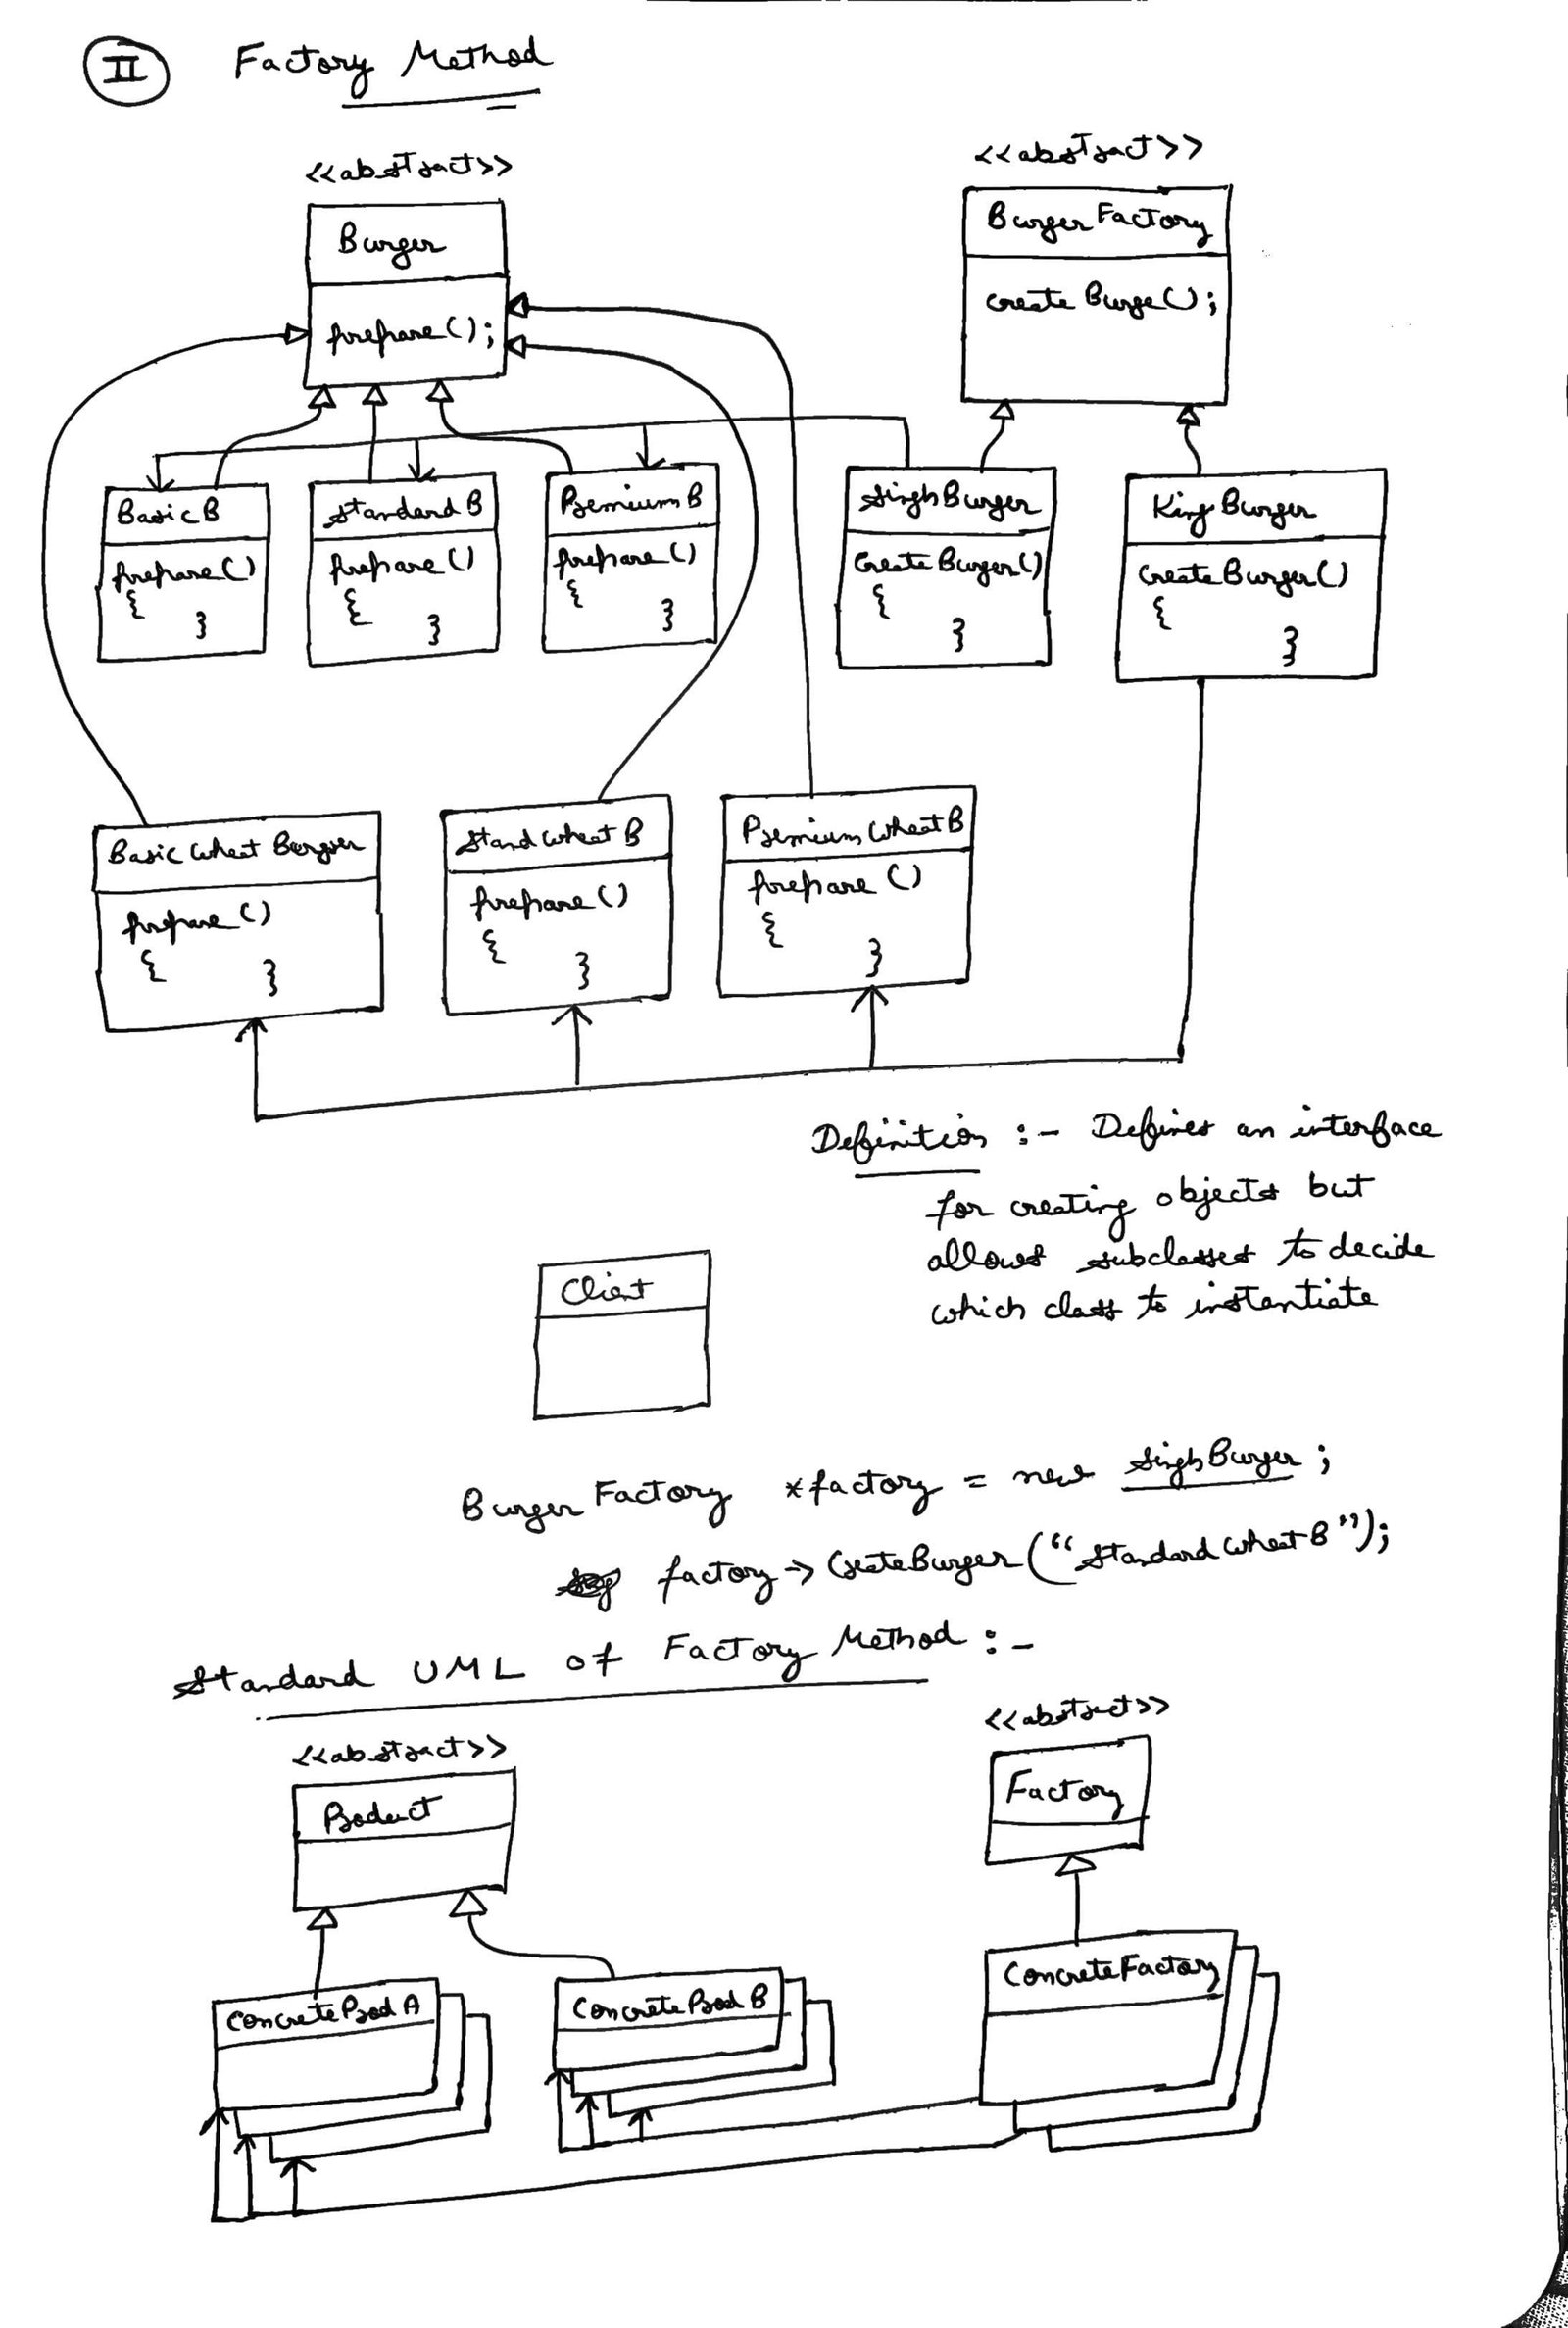 II Factory Method
<<abstract>>
<<abstract>>
Burger
prepare();
Burger Factory
create Burge();
BasicB
prepare()
{
}
Standard B
prepare()
{
}
Premium B
prepare()
{
}
Singh Burger
Create Burger()
{
}
King Burger
Create Burger()
{
}
Basic Wheat Burger
prepare()
{
}
Stand Wheat B
prepare()
{
}
Premium Wheat B
prepare()
{
}
Definition :- Defines an interface
for creating objects but
allows subclasses to decide
which class to instantiate
Client
Burger Factory *factory = new Singh Burger;
factory -> CreateBurger("Standard Wheat B");
Standard UML of Factory Method :-
<<abstract>>
<<abstract>>
Product
Factory
Concrete Prod A
Concrete Prod B
Concrete Factory